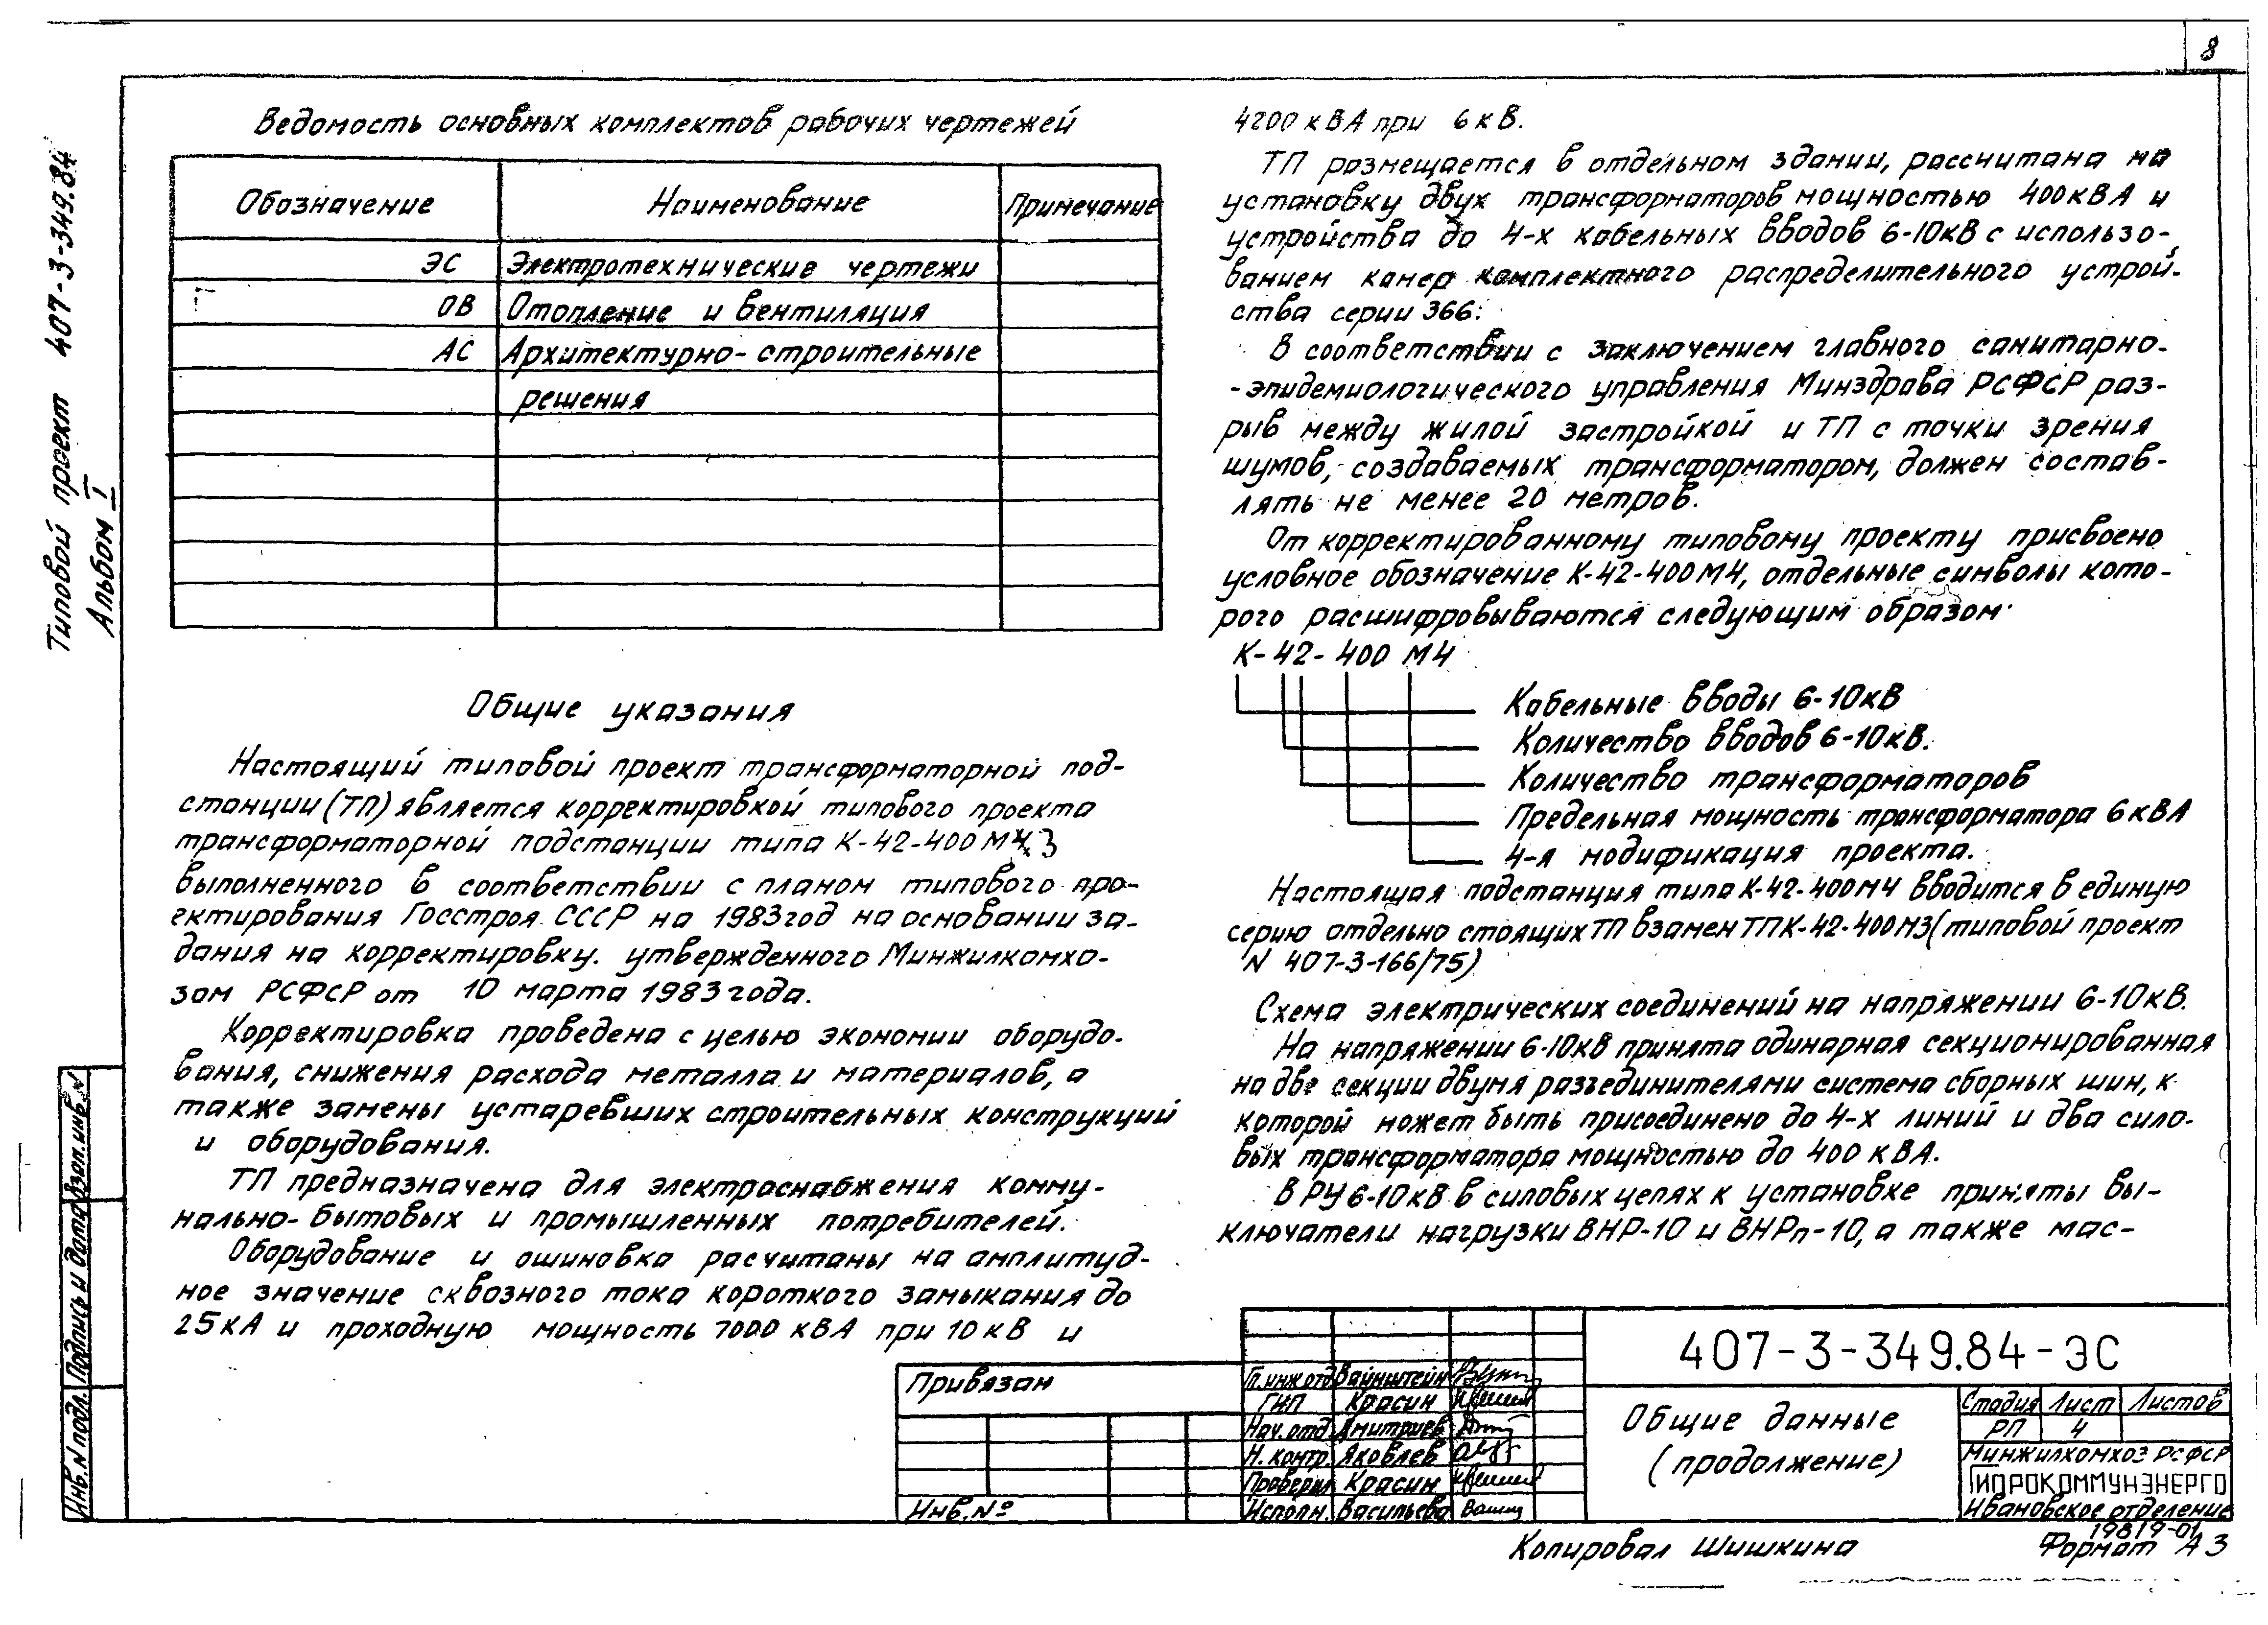 8
Типовой проект 407-3-349.84
Альбом I
Ведомость основных комплектов рабочих чертежей
Обозначение Наименование Примечание
ЭС Электротехнические чертежи
ОВ Отопление и вентиляция
АС Архитектурно-строительные
решения
Общие указания
Настоящий типовой проект трансформаторной под-
станции (ТП) является корректировкой типового проекта
трансформаторной подстанции типа К-42-400М3
выполненного в соответствии с планом типового про-
ектирования Госстроя СССР на 1983год на основании за-
дания на корректировку. утвержденного Минжилкомхо-
зом РСФСР от 10 марта 1983года.
Корректировка проведена с целью экономии оборудо-
вания, снижения расхода металла и материалов, а
также замены устаревших строительных конструкций
и оборудования.
ТП предназначена для электроснабжения комму-
нально-бытовых и промышленных потребителей.
Оборудование и ошиновка расчитаны на амплитуд-
ное значение сквозного тока короткого замыкания до
25кА и проходную мощность 7000 кВА при 10кВ и
4200 кВА при 6кВ.
ТП размещается в отдельном здании, рассчитана на
установку двух трансформаторов мощностью 400кВА и
устройства до 4-х кабельных вводов 6-10кВ с использо-
ванием камер комплектного распределительного устрой-
ства серии 366.
В соответствии с заключением главного санитарно-
-эпидемиологического управления Минздрава РСФСР раз-
рыв между жилой застройкой и ТП с точки зрения
шумов, создаваемых трансформатором, должен состав-
лять не менее 20 метров.
Откорректированному типовому проекту присвоено
условное обозначение К-42-400М4, отдельные символы кото-
рого расшифровываются следующим образом:
К-42-400 М4
Кабельные вводы 6-10кВ
Количество вводов 6-10кВ.
Количество трансформаторов
Предельная мощность трансформатора 6кВА
4-я модификация проекта.
Настоящая подстанция типа К-42-400М4 вводится в единую
серию отдельно стоящих ТП взамен ТПК-42-400М3 (типовой проект
N 407-3-166/75)
Схема электрических соединений на напряжении 6-10кВ.
На напряжении 6-10кВ принята одинарная секционированная
на две секции двумя разъединителями система сборных шин, к
которой может быть присоединено до 4-х линий и два сило-
вых трансформатора мощностью до 400 кВА.
В РУ 6-10кВ в силовых цепях к установке приняты вы-
ключатели нагрузки ВНР-10 и ВНРп-10, а также мас-
Взап.инв.N
Подпись и дата
Инв.N подл.
Привязан
Инв.№
Гл.инж.отд Вайнштейн
ГИП Красин
Нач.отд Дмитриев
Н.контр. Яковлев
Проверил Красин
Исполн. Васильева
407-3-349.84-ЭС
Общие данные
(продолжение)
Стадия Лист Листов
РП 4
Минжилкомхоз РСФСР
ГИПРОКОММУНЭНЕРГО
Ивановское отделение
19819-01
Копировал Шишкина Формат А3